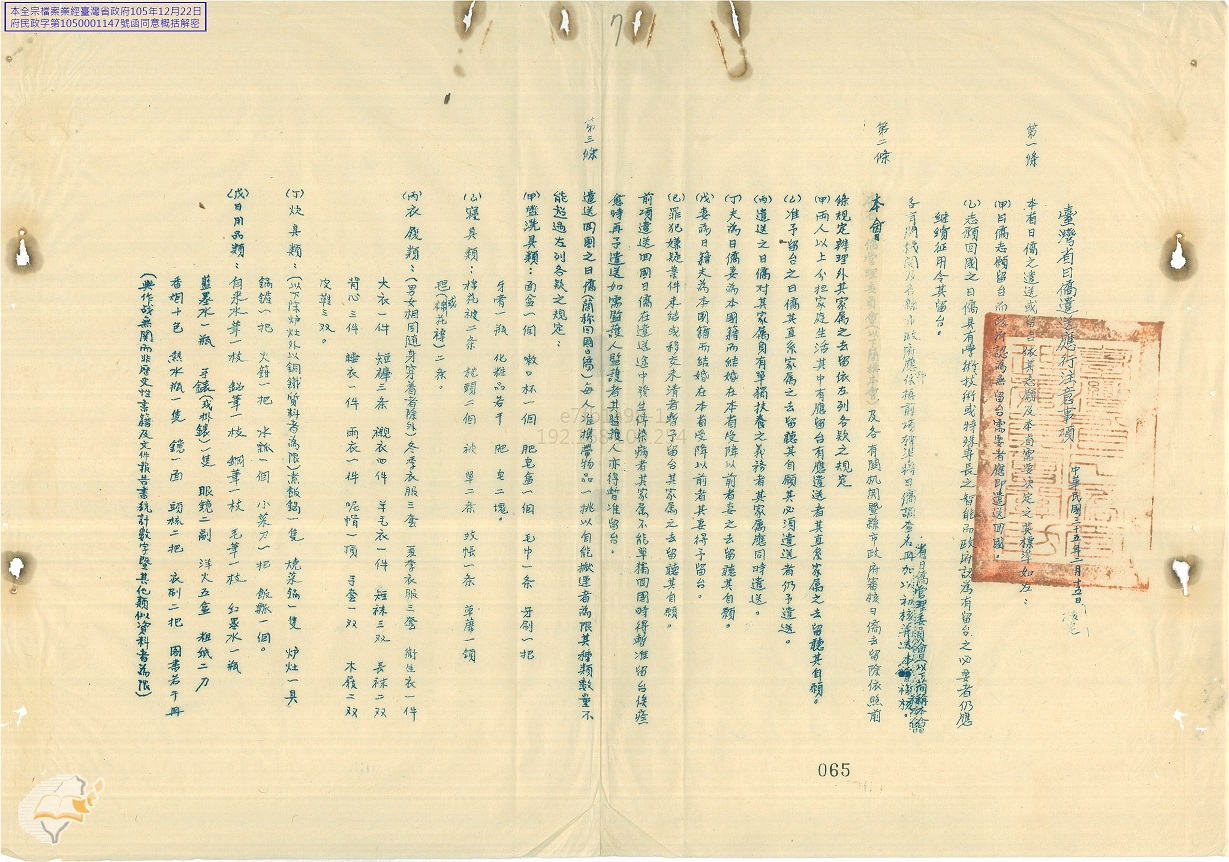 本全宗檔案業經臺灣省政府105年12月22日
府民政字第1050001147號函同意概括解密
7
臺灣省日僑遣送應行注意事項
中華民國三十五年二月十五日
第一條
本省日僑之遣送或留台依其志願及本省需要決定之其標準如左：
(甲)日僑志願留台而政府認為無留台需要者應即遣送回國。
(乙)志願回國之日僑具有學術技術或特殊專長之智能而政府認為有留台之必要者仍應
繼續征用令其留台。
第二條
省日僑管理委員會(以下簡稱本會)
各有關機關及各縣市政府應依據前項標準將日僑調查
本會
及各有關机関暨縣市政府審核日僑去留除依照前
條規定辦理外其家属之去留依左列各欵之規定
(甲)两人以上分担家庭生活其中有應留台有應遣送者其直系家属之去留聽其自願。
(乙)准予留台之日僑其直系家属之去留聽其自願其必須遣送者仍予遣送。
(丙)遣送之日僑对其家属負有單獨扶養之義務者其家属應同時遣送。
(丁)夫為日僑妻為本國籍而結婚在本省受降以前者妻之去留聽其自願。
(戊)妻為日籍夫為本國籍而結婚在本省受降以前者其妻得予留台。
(己)罪犯嫌疑案件未結或移交未清者暫予留台其家属之去留聽其自願。
前項遣送回國日僑在遣送途中發生傳染病者其家属不能單獨回國時得暫准留台俟痊
愈時再予遣送如需監護人監護者其監護人亦得暫准留台。
第三條
遣送回國之日僑(簡称回國日僑)每人准携帶物品一挑以自能搬運者為限其種類數量不
能超過左列各欵之規定：
(甲)盥洗具類：面盆一個　漱口杯一個　肥皂盒一個　毛巾一条　牙刷一把
牙膏一瓶　化粧品若干　肥皂二塊。
(乙)寢具類：棉花被二条　枕頭二個　被單二条　蚊帳一条　草蓆一領
毯(或棉花褥)二条。
(丙)衣履類：(男女相同随身穿着者除外)冬季衣服三套　夏季衣服三套　衛生衣一件
大衣一件　短褲三条　襯衣四件　羊毛衣一件　短袜三双　長袜二双
背心三件　睡衣一件　雨衣一件　呢帽一頂　手套一双　木屐二双
皮鞋三双。
(丁)炊具類：(以下除炉灶外以銅鐵質料者為限)煮飯鍋一隻　燒菜鍋一隻　炉灶一具
鍋鏟一把　火鉗一把　水瓢一個　小菜刀一把　飯瓢一個。
(戊)日用品類：自来水筆一枝　鉛筆一枝　鋼筆一枝　毛筆一枝　紅墨水一瓶
藍墨水一瓶　手錶(或掛錶)一隻　眼鏡二副　洋火五盒　粗紙二刀
香烟十包　熱水瓶一隻　鏡一面　頭梳二把　衣刷二把　圖書若干冊
(與作战無関而非歷史性書籍及文件報告書統計數字暨其他類似資料者為限)
065